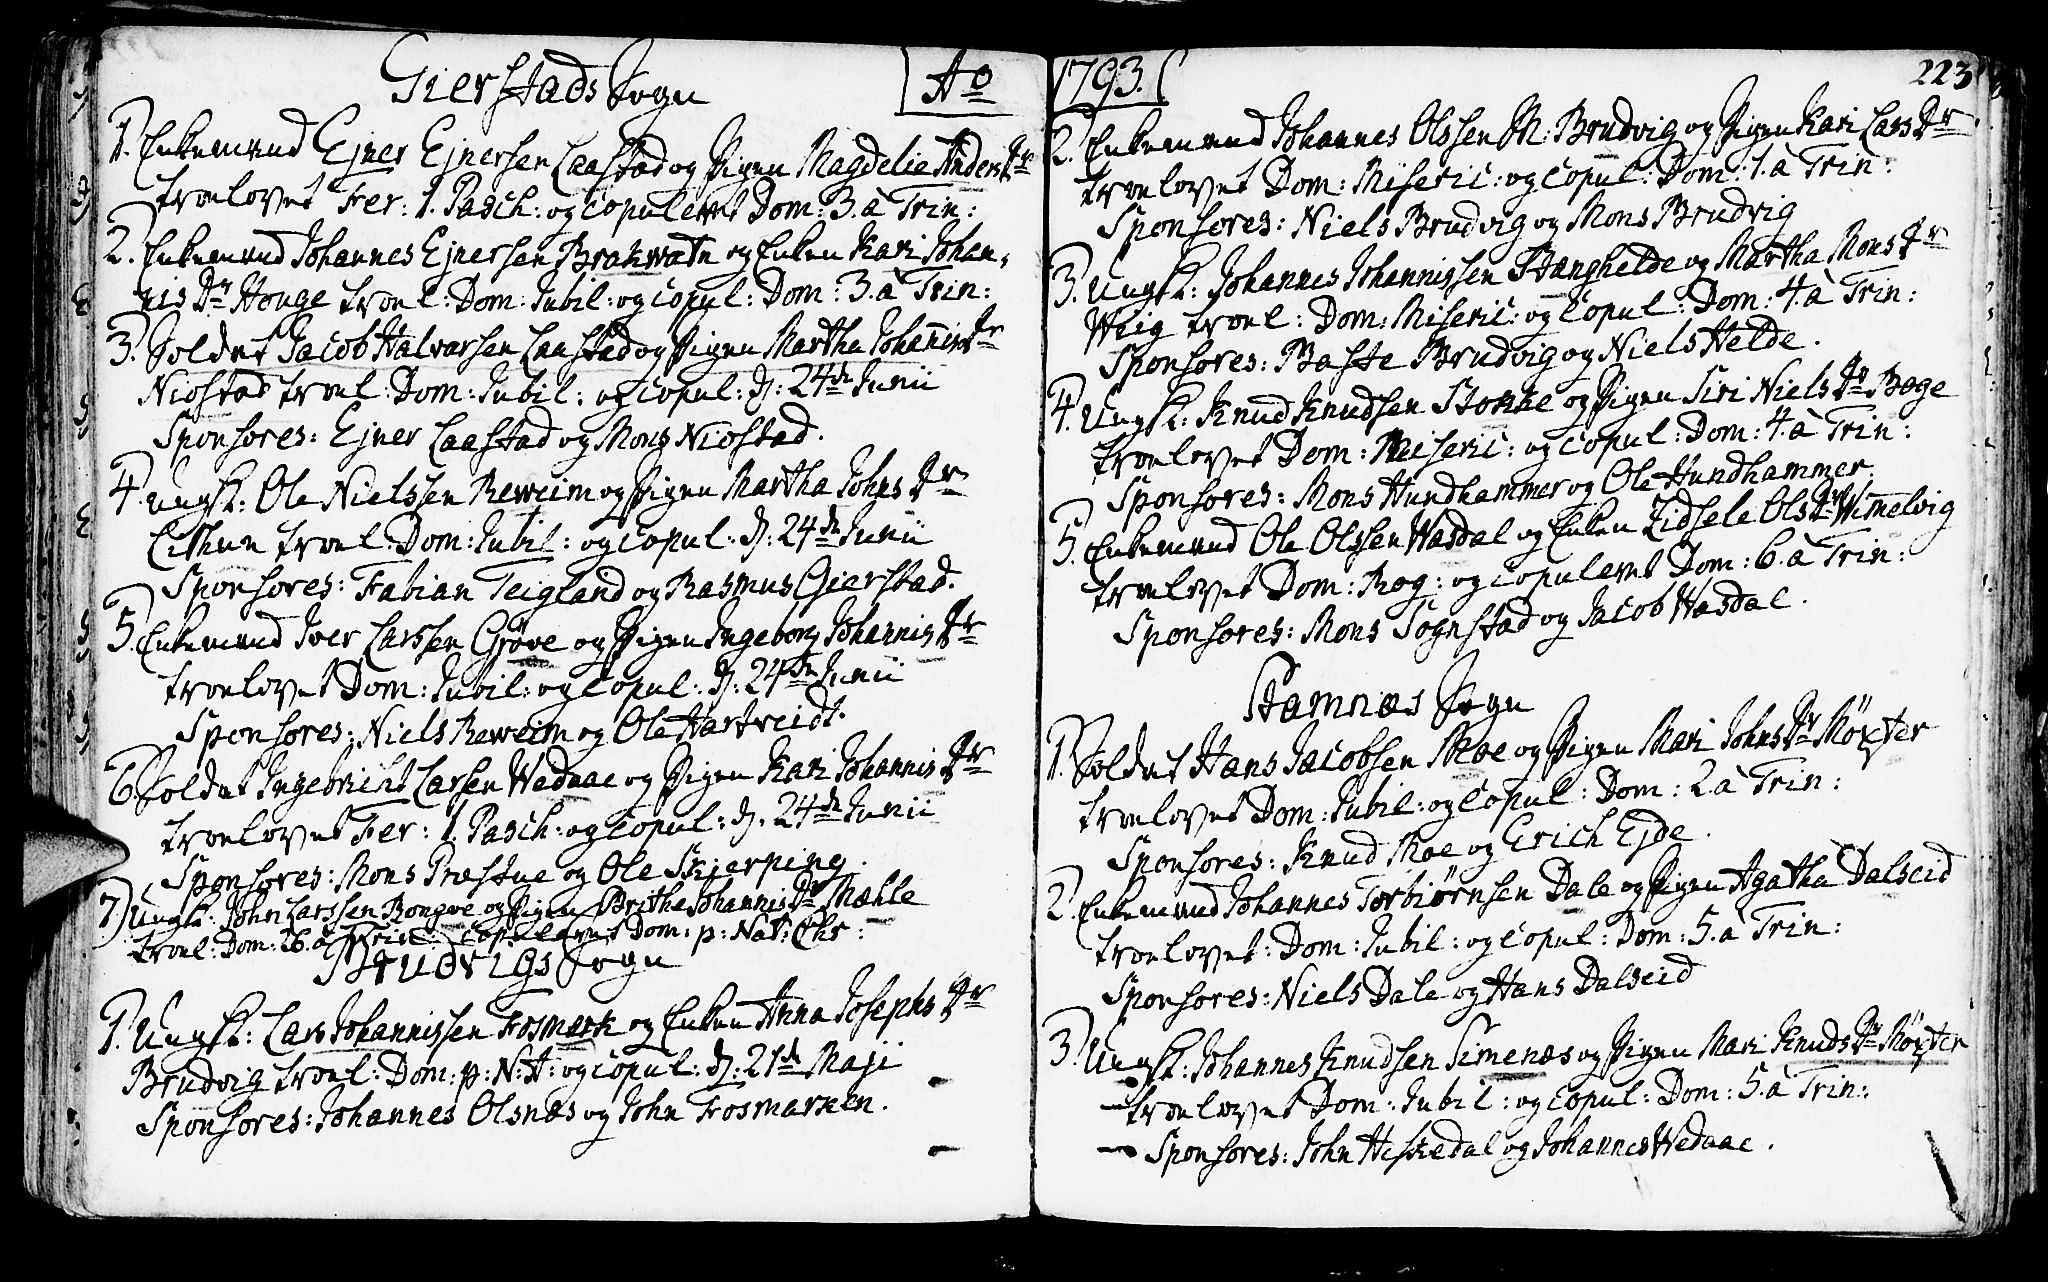 Gierstads Sogn
Ao
1. Enkemand Ejner Ejnersen Laastad og Pigen Magdelie Anders Dr
troelovet Fer: 1. Pasch: og copuleret Dom: 3. à Trin:
2. Enkemand Johannes Ejnersen Brakvatn og Enken Kari Johan-
nis Dr Houge troel: Dom: Jubil: og copul: Dom: 3. à Trin:
3. Soldat Jacob Halvarsen Laastad og Pigen Martha Johanis Dr
Niostad troel: Dom: Jubil: og copul: d: 24de Junii
Sponsores: Ejner Laastad og Mons Niostad.
4. Ungk: Ole Nielssen Reweim og Pigen Martha Johns Dr
troel: Dom: Jubil: og copul: d: 24de Junii
Sponsores: Fabian Teigland og Rasmus Gierstad.
5. Enkemand Iver Larssen Grøve og Pigen Ingeborg Johannis Dr
troelovet Dom: Jubil: og copul: d: 24de Junii
Sponsores: Niels Reweim og Ole Hartveidt.
6. Soldat Ingebricht Larsen Wedaae og Pigen Kari Johannis Dr
troelovet Fer: 1. Pasch: og copul: d: 24de Junii
Sponsores: Mons Præstue og Ole Skjerping.
7) Ungk: John Larssen Rongve og Pigen Britha Johannis Dr Mæhle
troel: Dom: 26. à Trin: copuleret Dom: p: Nat: Chr:
Brudvigs Sogn
1. Ungk: Lars Johannissen Fosmark og Enken Anna Josephs Dr
Brudvig troel: Dom: p: N: A: og copul: d: 21de Maji
Sponsores: Johannes Olsnæs og John Fosmarken.
1793.
223
2. Enkemand Johannes Olssen M: Brudvig og Pigen Kari Lars Dr
troelovet Dom: Miseric: og copul: Dom: 1. à Trin:
Sponsores: Niels Brudvig og Mons Brudvig
3. Ungk: Johannes Johannissen Stanghelde og Martha Mons Dr
Weig troel: Dom: Miseric: og copul: Dom: 4. à Trin:
Sponsores: Baste Brudvig og Niels Helde.
4. Ungk: Knud Knudsen Stokke og Pigen Siri Niels Dr Bøge
troelovet Dom: Miseric: og copul: Dom: 4. à Trin:
Sponsores: Mons Hundhammer og Ole Hundhammer.
5. Enkemand Ole Olssen Wasdal og Enken Zidsele Ols Dr Wimelvig
troelovet Dom: Rog: og copuleret Dom: 6. à Trin:
Sponsores: Mons Sognstad og Jacob Wasdal.
Stamnæs Sogn
1. Soldat Hans Jacobsen Moe og Pigen Mari Johns Dr Møxter
troelovet Dom: Jubil: og copul: Dom: 2. à Trin:
Sponsores: Knud Moe og Erich Ejde.
2. Enkemand Johannes Torbiørnsen Dale og Pigen Agatha Dalseid
troelovet: Dom: Jubil: og copul: Dom: 5. à Trin:
Sponsores: Niels Dale og Hans Dalseid
3. Ungk: Johannes Knudsen Simenæs og Pigen Mari Knuds Dr Møxter
troelovet Dom: Jubil: og copul: Dom: 5. à Trin:
Sponsores: John Heskedal og Johannes Wedaae.